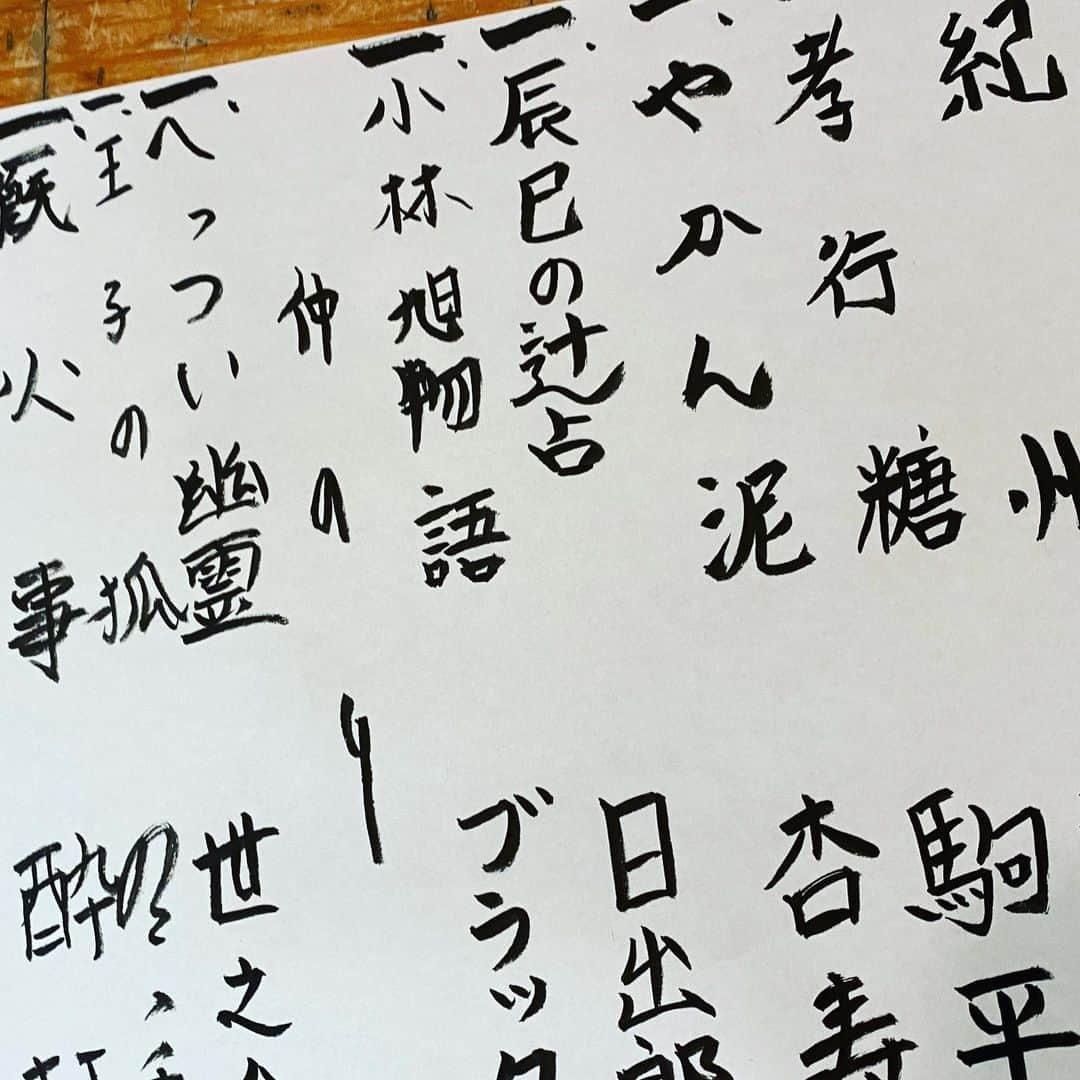 紀州
孝行糖 駒平
一、やかん泥 杏寿
一、辰巳の辻占 日出郎
一、小林旭物語 ブラック
仲のり
一、へっつい幽霊 世之
一、王子の狐
一、厩火事 酔